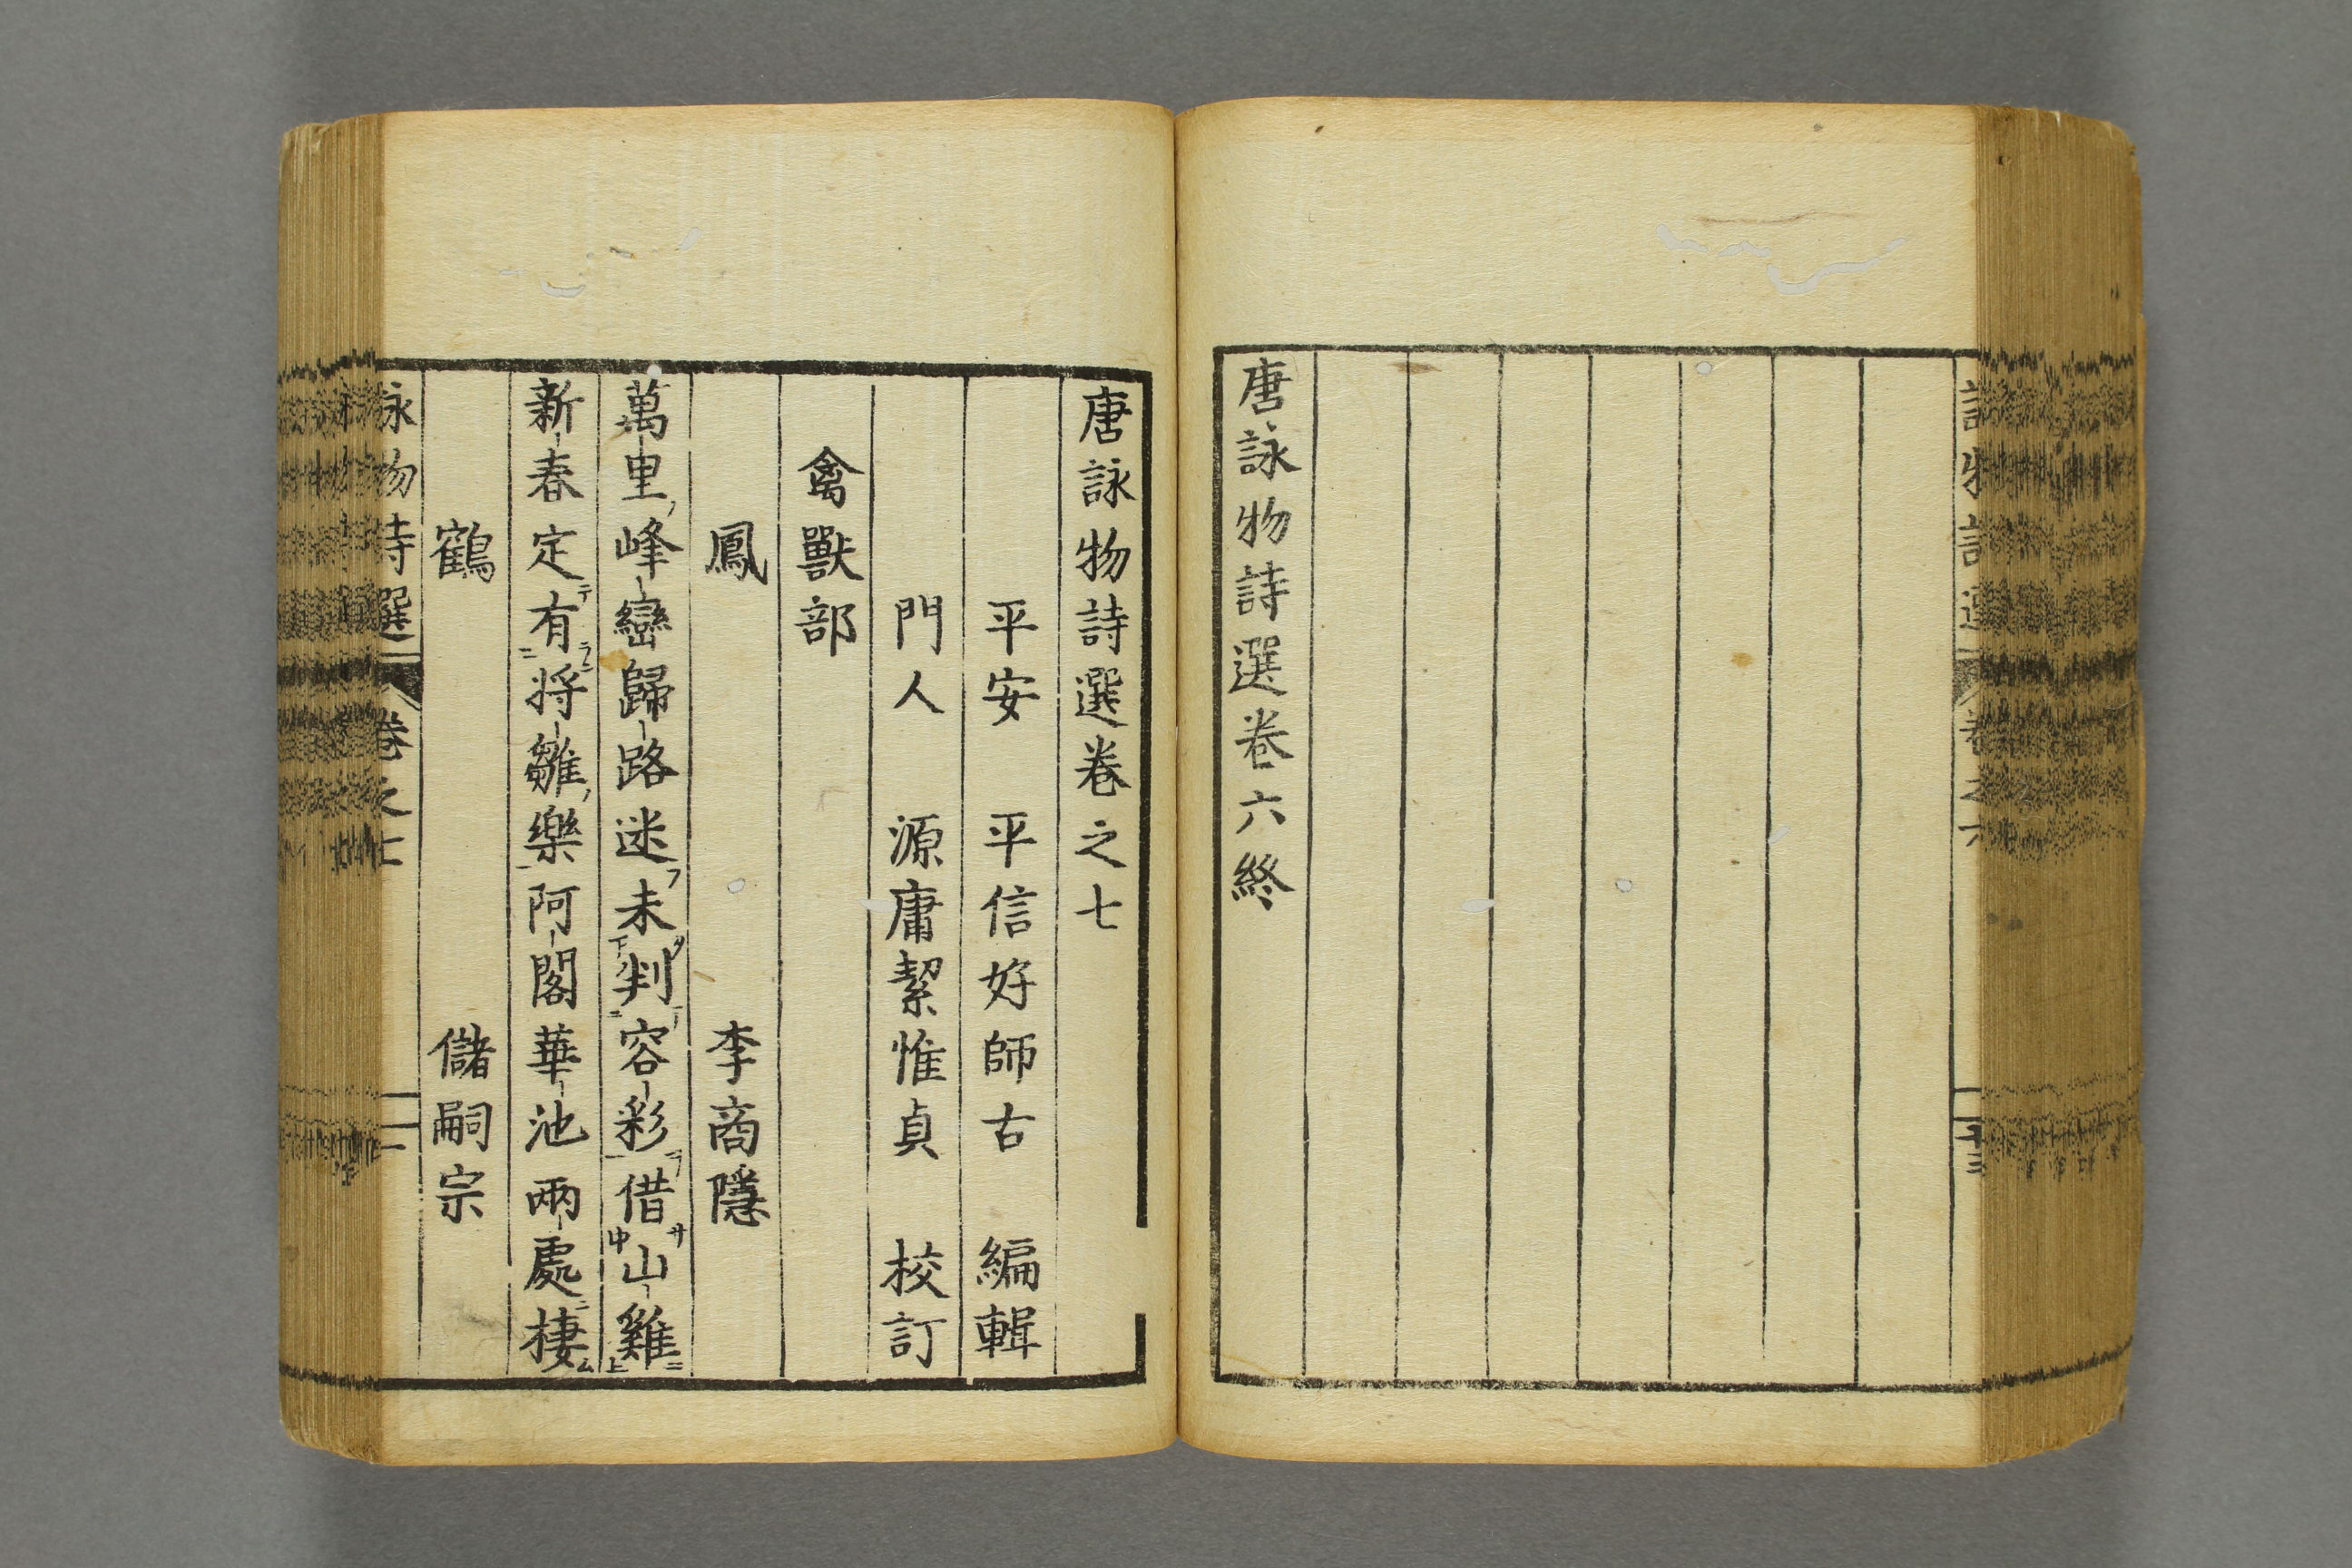 唐詠物詩選卷六終
唐詠物詩選卷之七
平安　平信好師古　編輯
門人　源庸絜惟貞　校訂
禽獸部
鳳　李商隱
萬里峰巒歸路迷未判容彩借山雞
新春定有將雛樂阿閣華池兩處棲
鶴　儲嗣宗
詠物詩選　卷之七　一